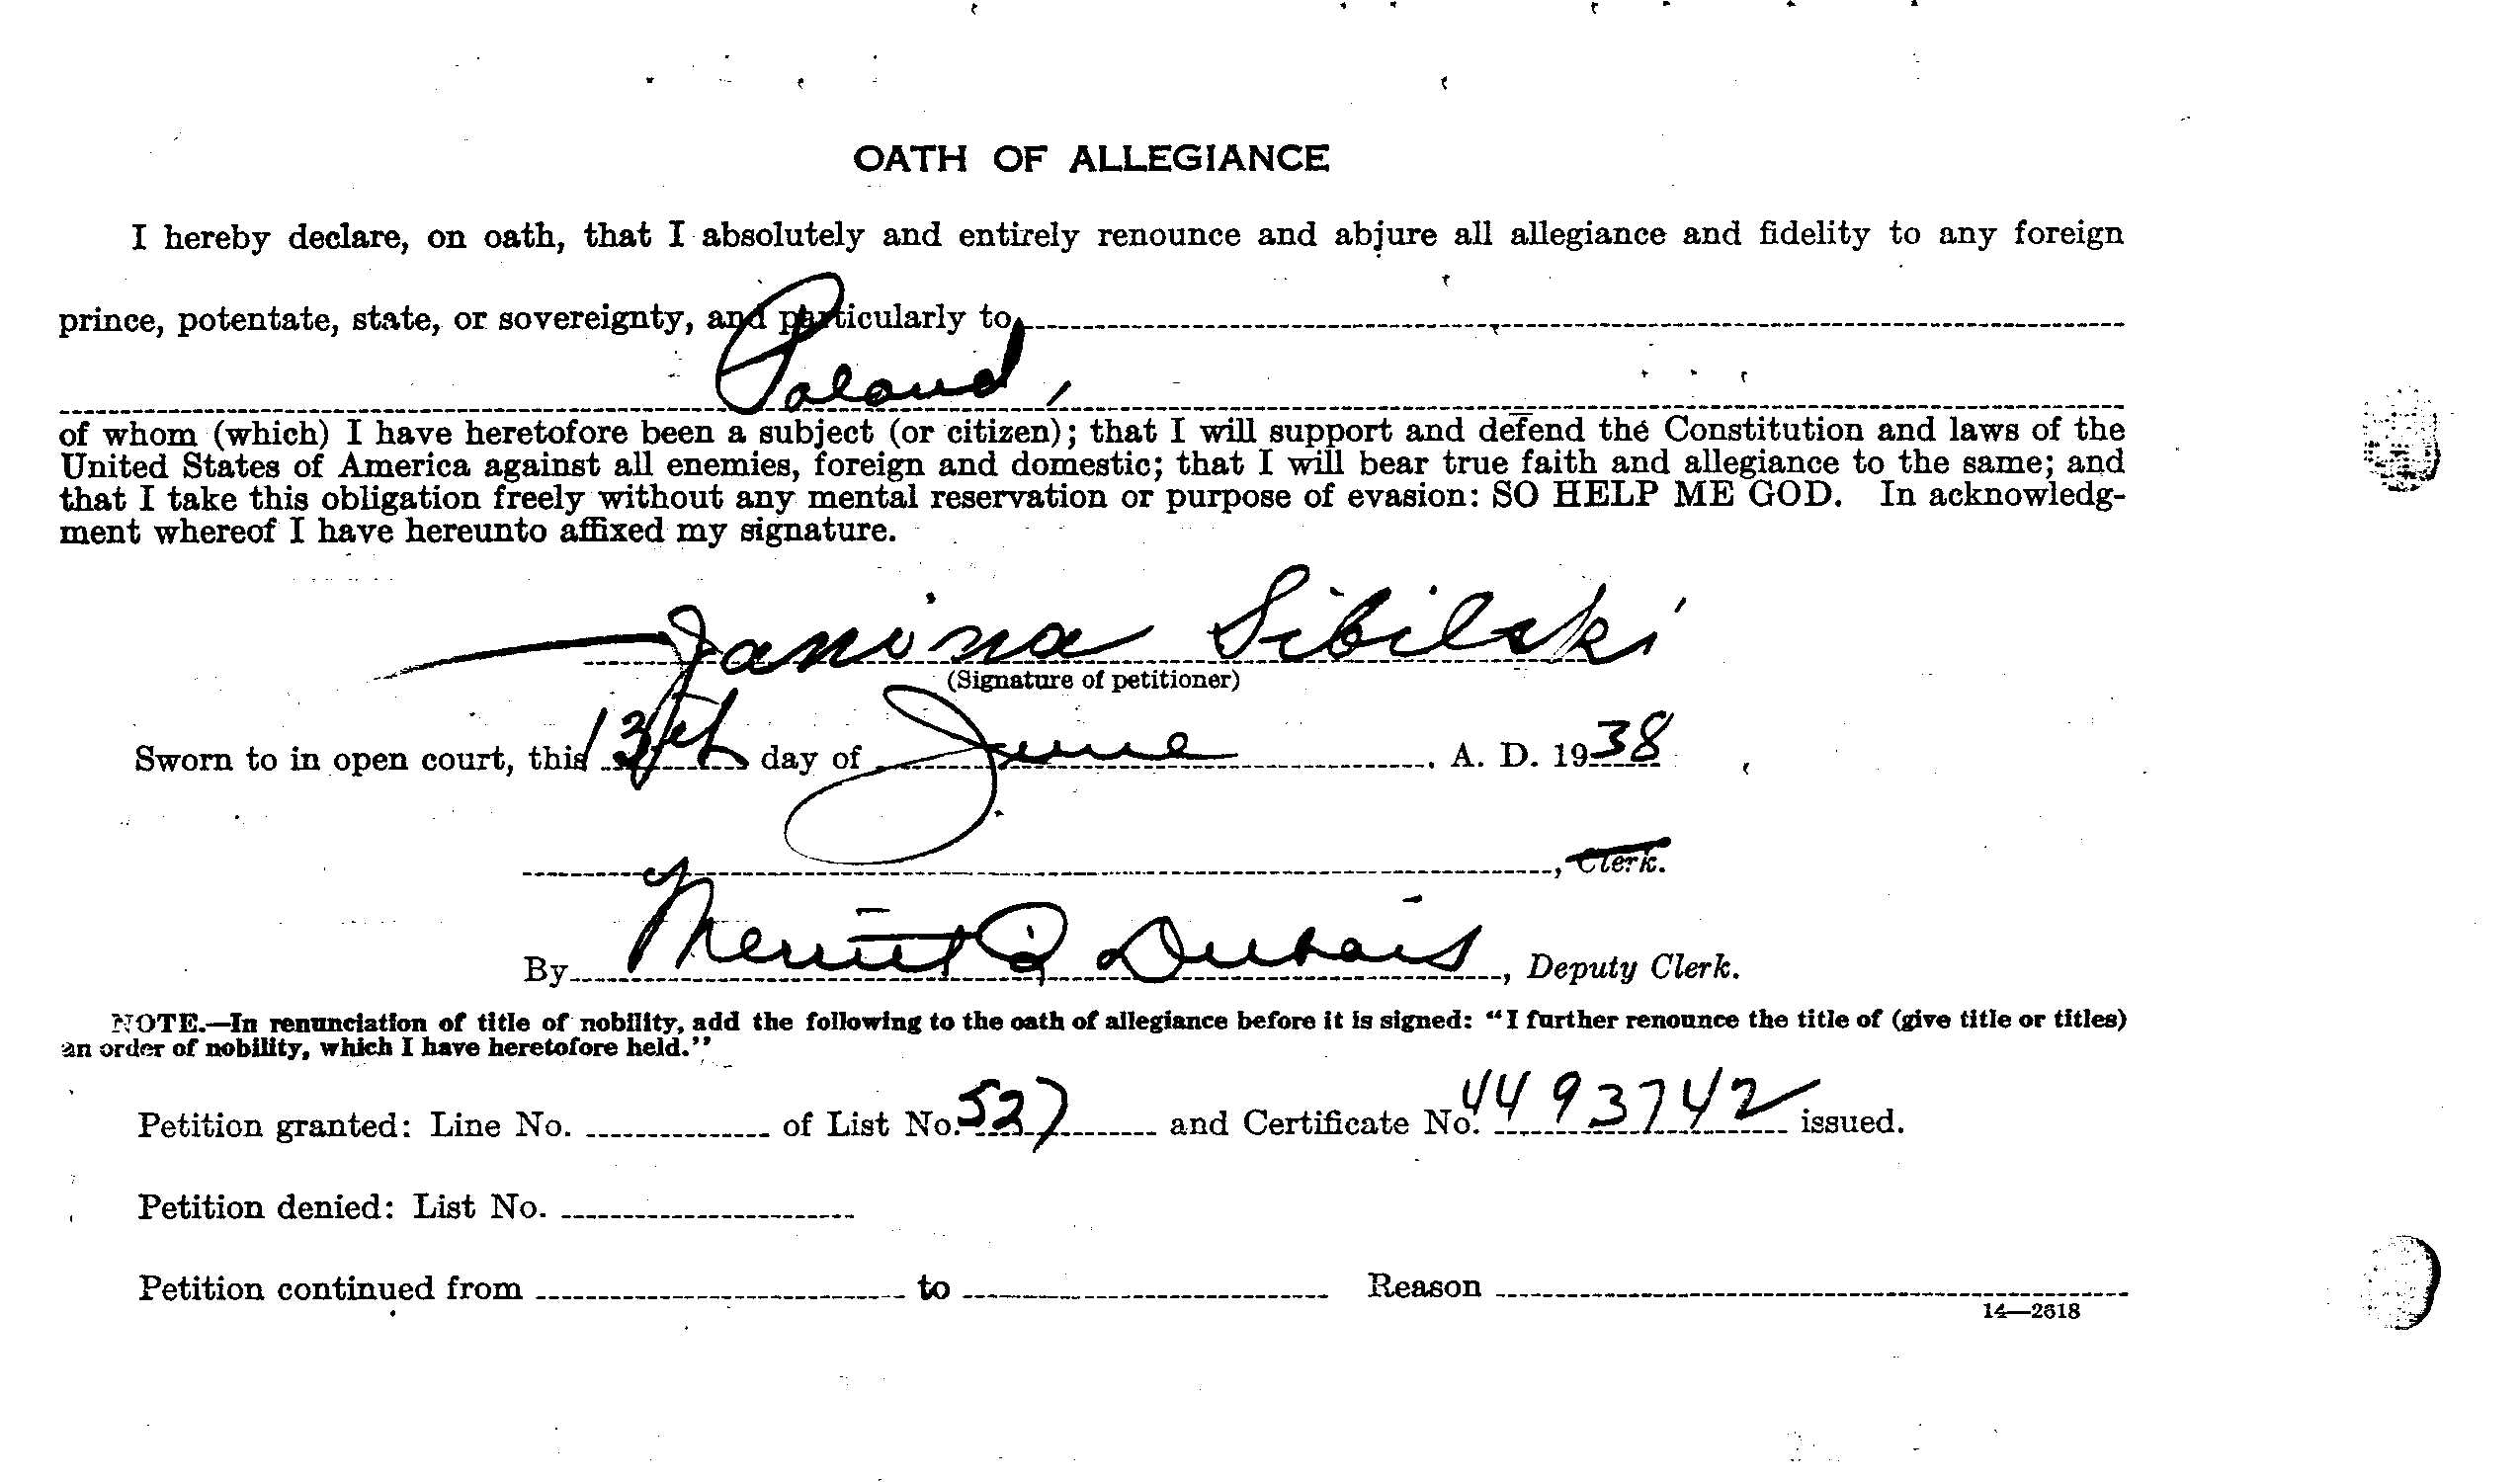 OATH OF ALLEGIANCE
I hereby declare, on oath, that I absolutely and entirely renounce and abjure all allegiance and fidelity to any foreign
prince, potentate, state, or sovereignty, and particularly to
Poland,
of whom (which) I have heretofore been a subject (or citizen); that I will support and defend the Constitution and laws of the
United States of America against all enemies, foreign and domestic; that I will bear true faith and allegiance to the same; and
that I take this obligation freely without any mental reservation or purpose of evasion: SO HELP ME GOD. In acknowledg-
ment whereof I have hereunto affixed my signature.
Janina Sibilski
(Signature of petitioner)
Sworn to in open court, this 13th day of June, A. D. 1938
, Clerk.
By Merritt Dubois, Deputy Clerk.
NOTE.—In renunciation of title of nobility, add the following to the oath of allegiance before it is signed: “I further renounce the title of (give title or titles)
an order of nobility, which I have heretofore held.”
Petition granted: Line No. of List No. 527 and Certificate No. 4493742 issued.
Petition denied: List No.
Petition continued from to Reason
14—2618